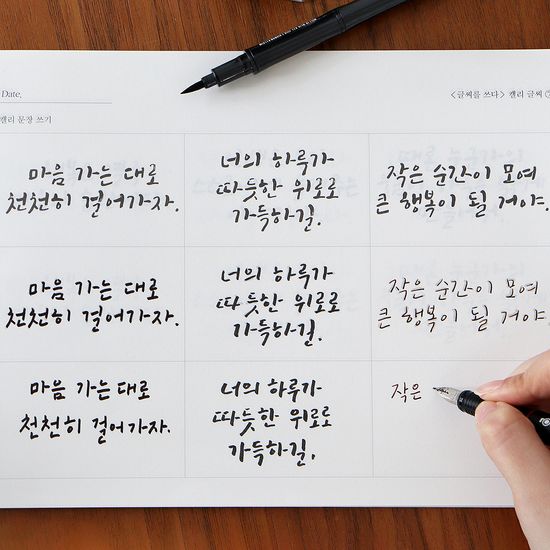 Date.
<글씨를 쓰다> 캘리 글씨
캘리 문장 쓰기
마음 가는 대로
천천히 걸어가자.
너의 하루가
따듯한 위로로
가득하길.
작은 순간이 모여
큰 행복이 될 거야.
마음 가는 대로
천천히 걸어가자.
너의 하루가
따듯한 위로로
가득하길.
작은 순간이 모여
큰 행복이 될 거야.
마음 가는 대로
천천히 걸어가자.
너의 하루가
따듯한 위로로
가득하길.
작은